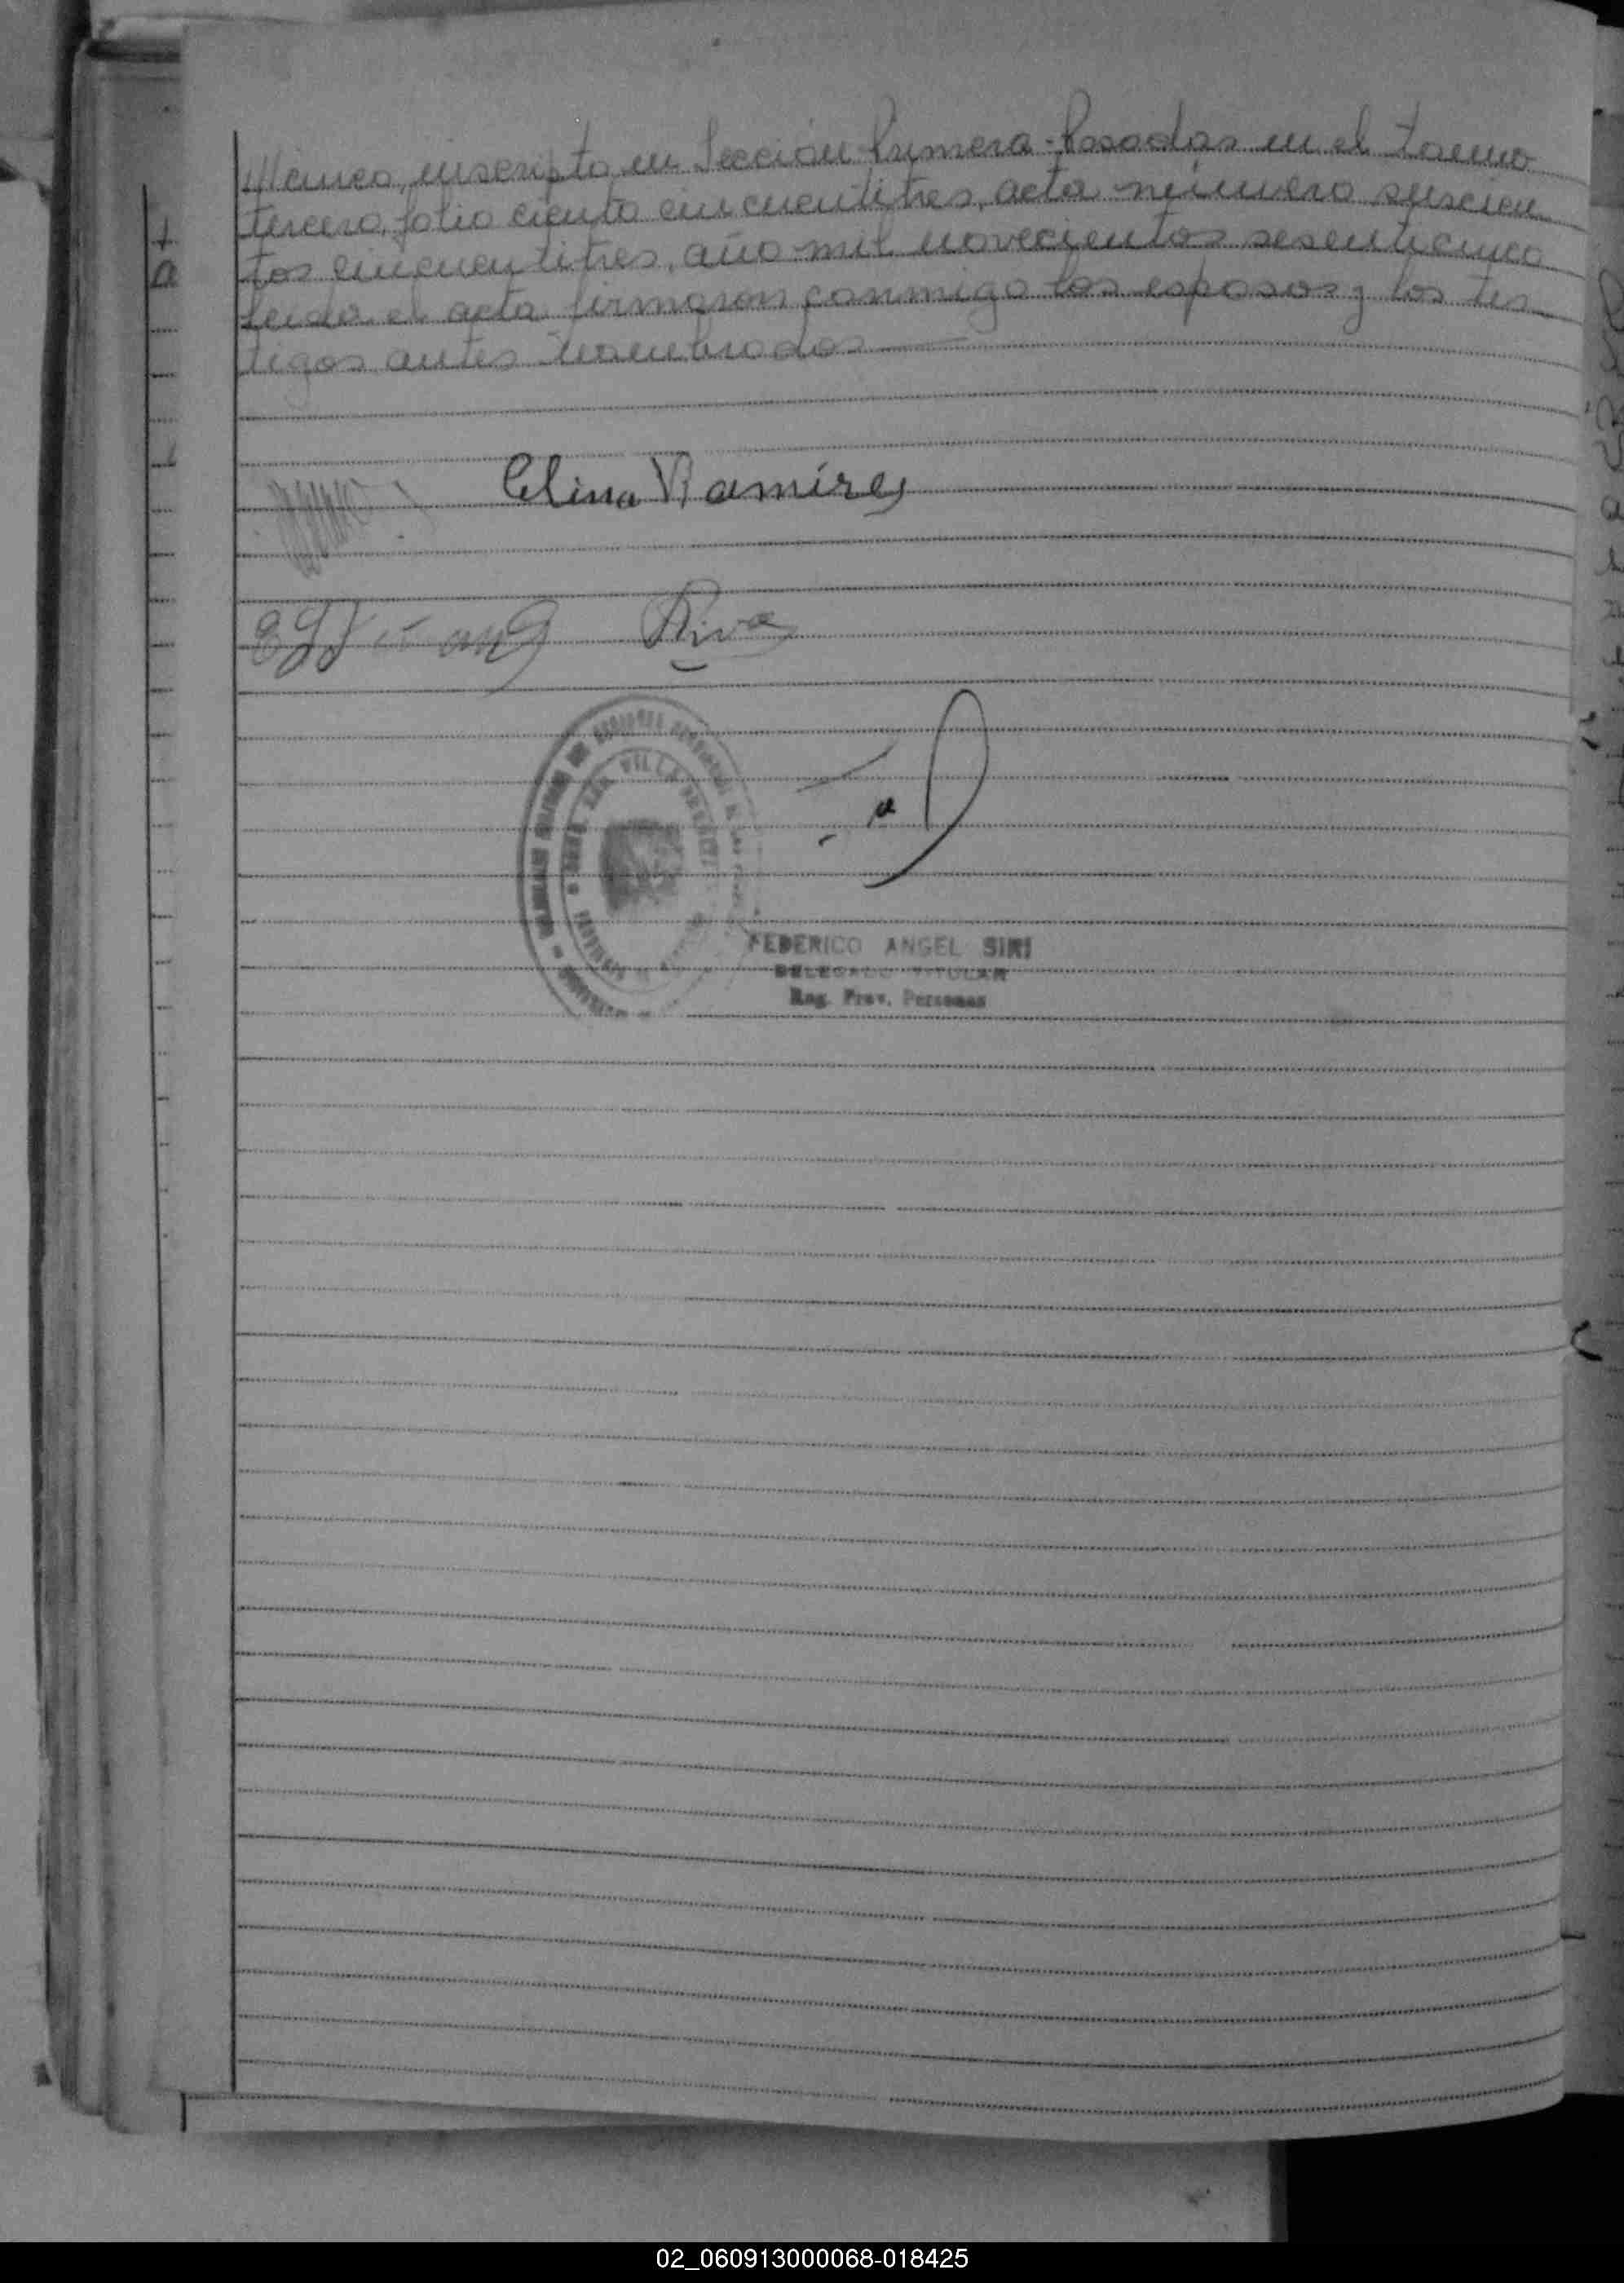 cinco, inscripto en Sección Primera-Posadas en el tomo
tercero, folio ciento cincuentitres, acta número seiscien
tos cincuentitres, año mil novecientos sesenticinco
leida el acta firmaron conmigo los esposos y los tes
tigos antes nombrados
Celina Ramires
Riva
FEDERICO ANGEL SIRI
DELEGADO TITULAR
Reg. Prov. Personas
02_060913000068-018425